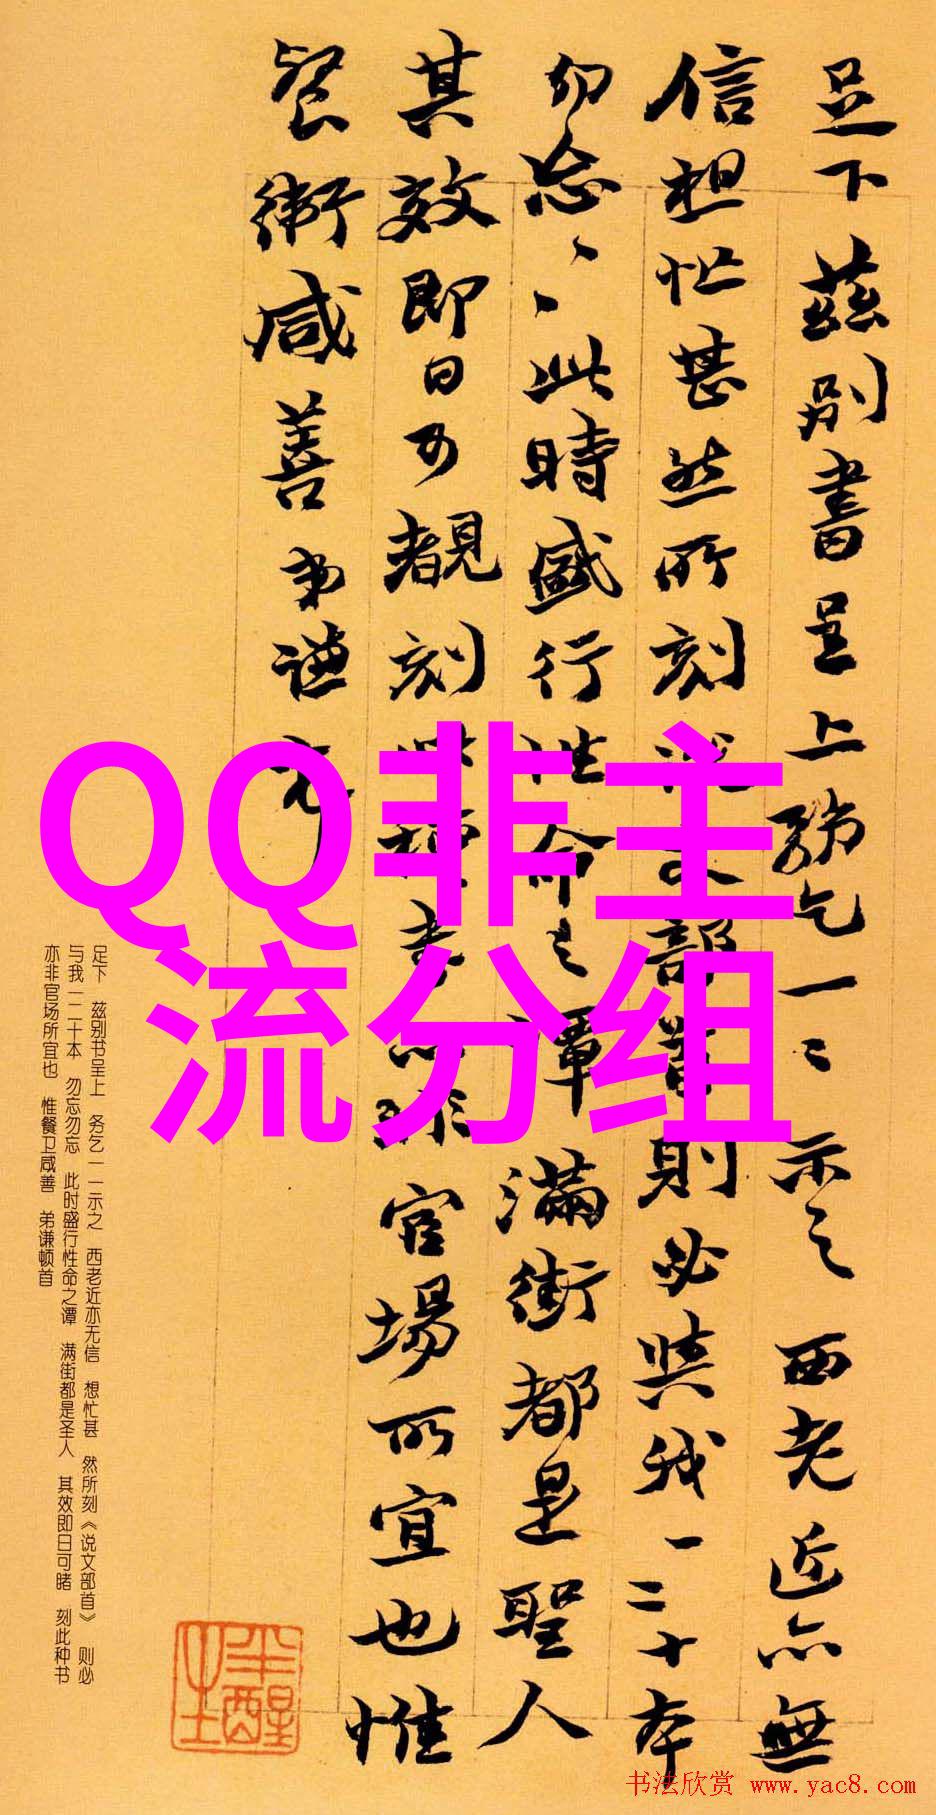 足下茲別書呈上務乞一二示之西老近亦無
信想忙甚然所刻說文部首則必與我一二十本
勿忘、、此時盛行性命之譚滿街都是聖人
其效即日可覩刻此種書亦非官場所宜也惟
餐衛咸善弟謙
QQ非主
流分组
足下 兹别书呈上 务乞一一示之 西老近亦无信 想忙甚 然所刻《说文部首》 则必
与我一二十本 勿忘勿忘 此时盛行性命之谭 满街都是圣人 其效即日可睹 刻此种书
亦非官场所宜也 惟餐卫咸善 弟谦顿首
半醒生
书法欣赏 www.yac8.com